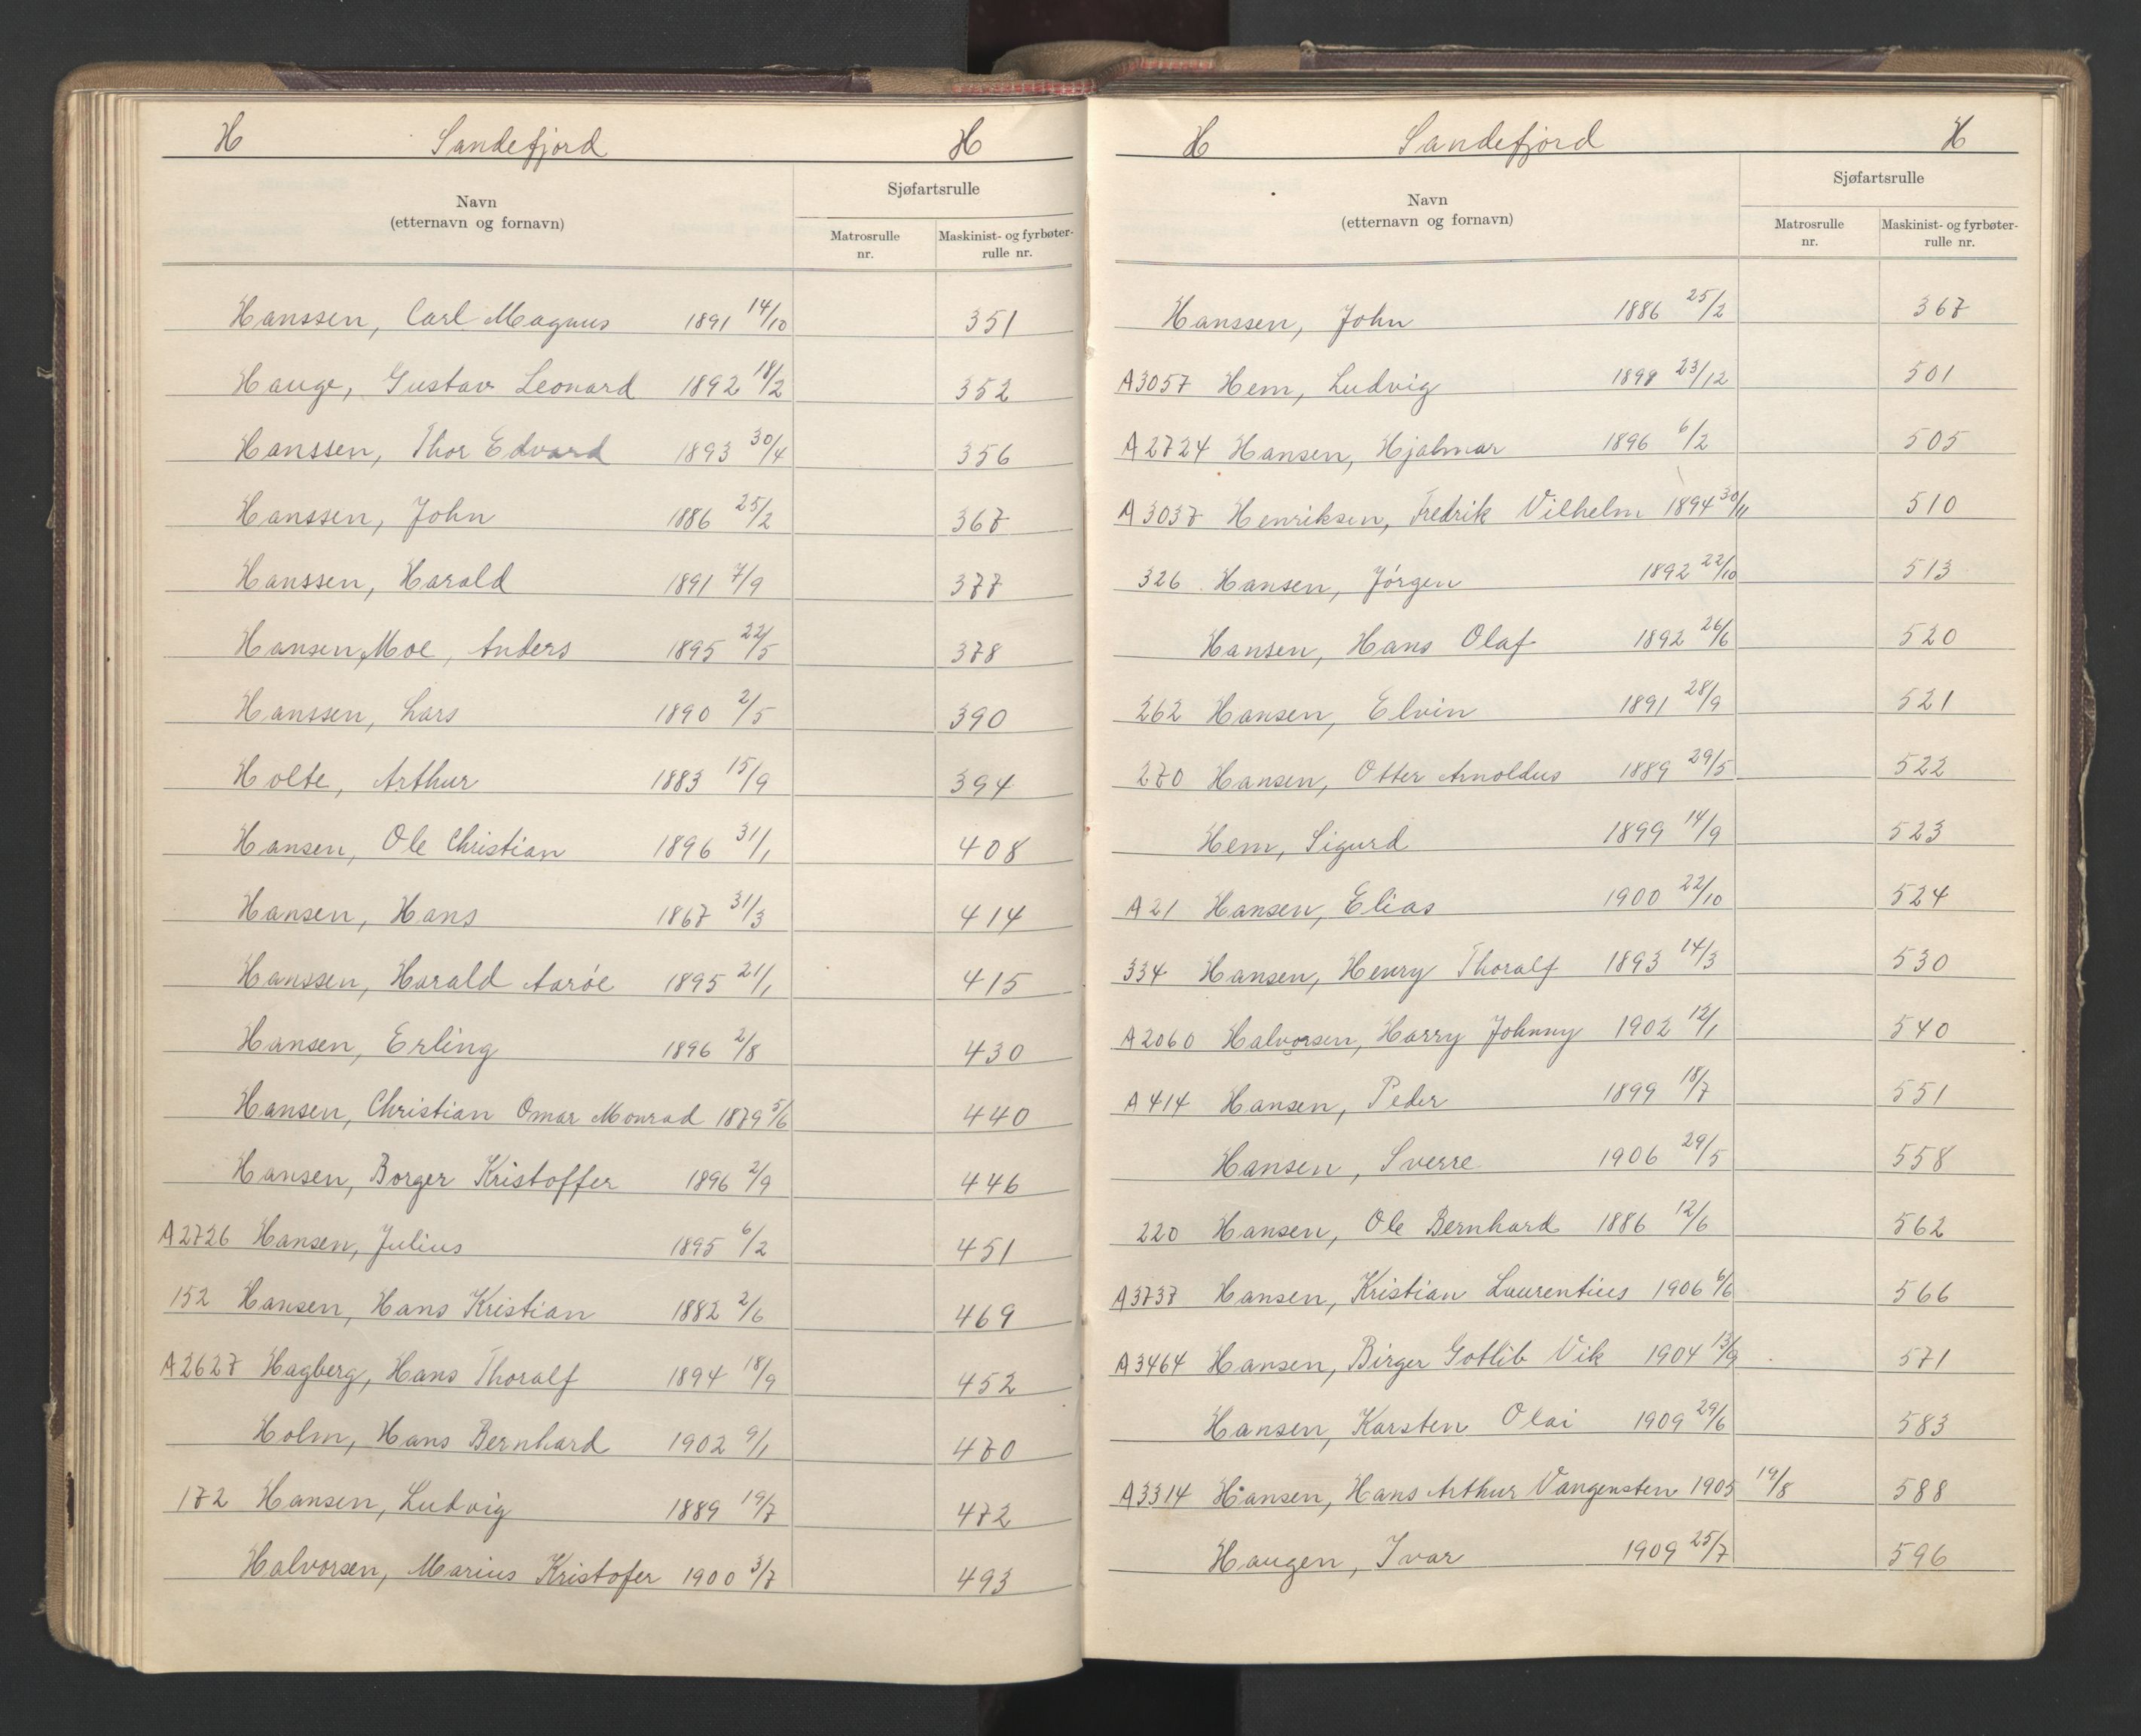 H Sandefjord H
Sjøfartsrulle
Navn
(etternavn og fornavn)
Matrosrulle nr.
Maskinist- og fyrbøter-rulle nr.
Hanssen, Carl Magnus 1891 14/10 351
Hauge, Gustav Leonard 1892 18/2 352
Hanssen, Thor Edvard 1893 30/4 356
Hanssen, John 1886 25/2 367
Hanssen, Harald 1891 7/9 377
Hansen Moe, Anders 1895 22/5 378
Hanssen, Lars 1890 2/5 390
Holte, Arthur 1883 15/9 394
Hansen, Ole Christian 1896 31/1 408
Hansen, Hans 1867 31/3 414
Hanssen, Harald Aarøe 1895 21/1 415
Hansen, Erling 1896 2/8 430
Hansen, Christian Omar Monrad 1879 5/6 440
Hansen, Borger Kristoffer 1896 2/9 446
A2726 Hansen, Julius 1895 6/2 451
152 Hansen, Hans Kristian 1882 2/6 469
A2627 Hagberg, Hans Thoralf 1894 18/9 452
Holm, Hans Bernhard 1902 9/1 470
172 Hansen, Ludvig 1889 19/7 472
Halvorsen, Marius Kristofer 1900 3/7 493
H Sandefjord H
Sjøfartsrulle
Navn
(etternavn og fornavn)
Matrosrulle nr.
Maskinist- og fyrbøter-rulle nr.
Hanssen, John 1886 25/2 367
A3057 Hem, Ludvig 23/12 501
A2724 Hansen, Hjalmar 1896 6/2 505
A3037 Henriksen, Fredrik Vilhelm 1894 30/11 510
326 Hansen, Jørgen 1892 22/10 513
Hansen, Hans Olaf 1892 26/6 520
262 Hansen, Elvin 1891 28/9 521
270 Hansen, Otter Arnoldus 1889 29/5 522
Hem, Sigurd 1899 14/9 523
A21 Hansen, Elias 1900 22/10 524
334 Hansen, Henry Thoralf 1893 14/3 530
A2060 Halvorsen, Harry Johnny 1902 12/1 540
A414 Hansen, Peder 1899 18/7 551
Hansen, Sverre 1906 29/5 558
220 Hansen, Ole Bernhard 1886 12/6 562
A3737 Hansen, Kristian Laurentius 1906 6/6 566
A3464 Hansen, Birger Gotlib Vik 1904 13/9 571
Hansen, Karsten Olai 1909 29/6 583
A3314 Hansen, Hans Arthur Vangensten 1905 19/8 588
Haugen, Ivar 1909 25/7 596